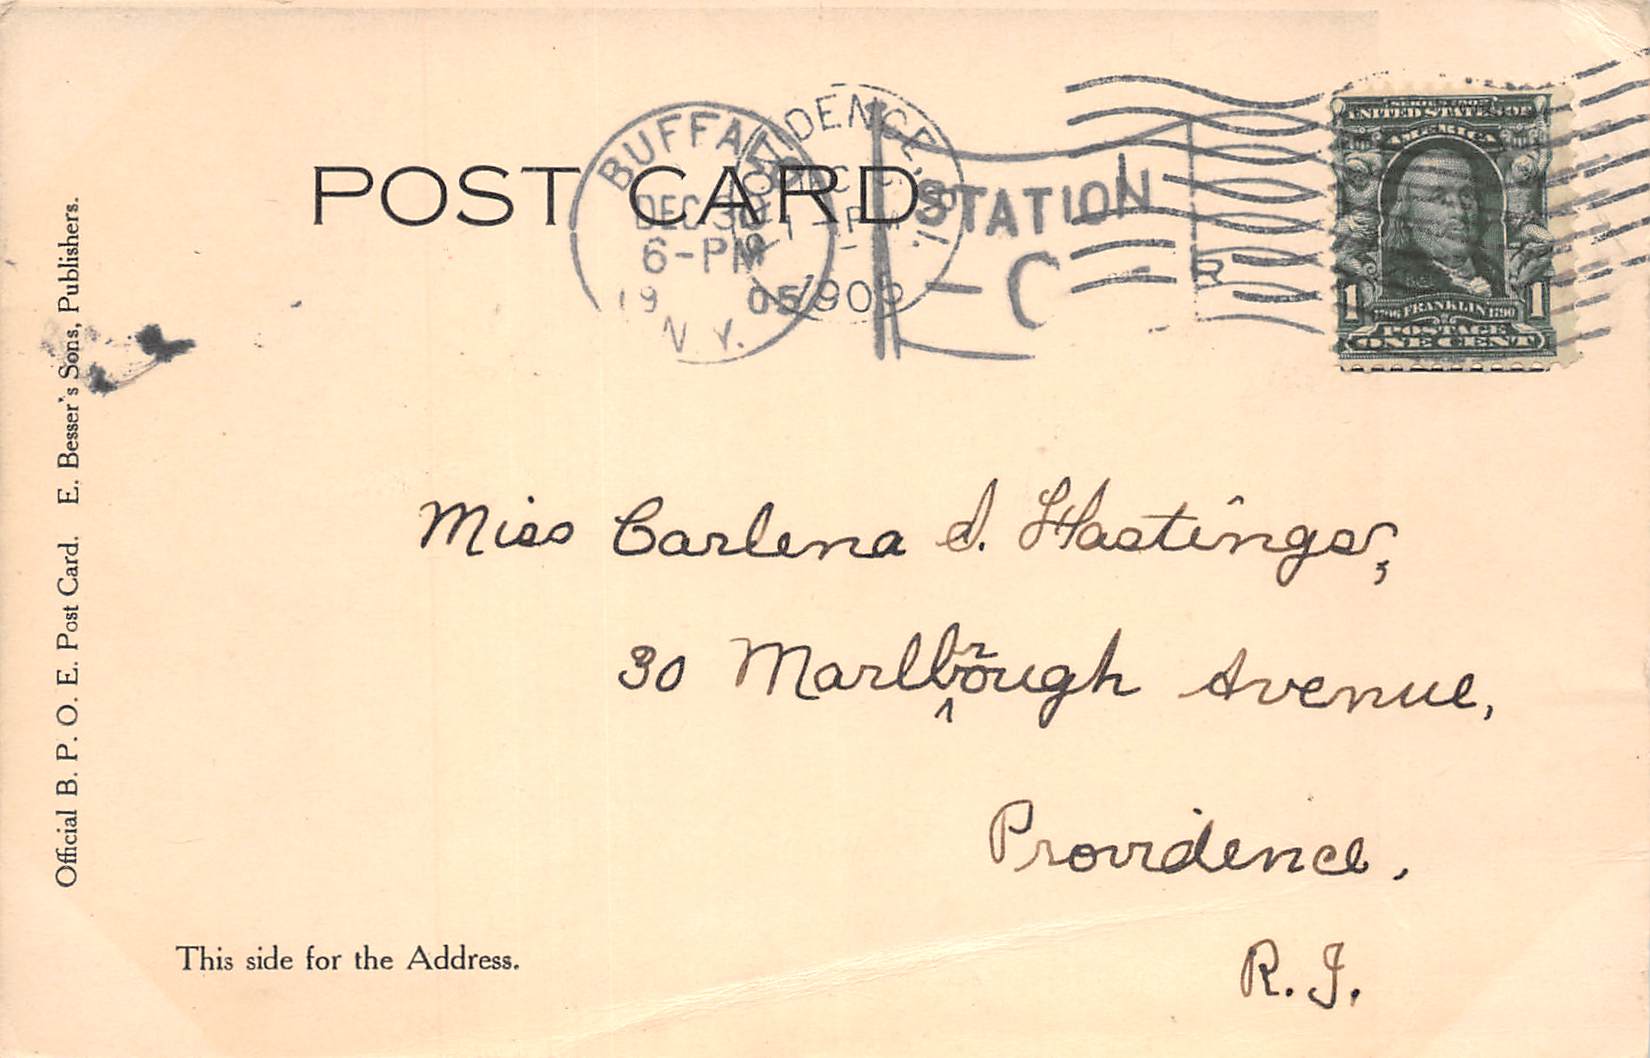 POST CARD
BUFFALO
DEC 30
6-PM
19 05
N.Y.
PROVIDENCE, R.I.
STATION
C
R
SERIES 1902
UNITED STATES OF
AMERICA
1706 FRANKLIN 1790
1 1
POSTAGE
ONE CENT
Official B. P. O. E. Post Card. E. Besser's Sons, Publishers.
Miss Carlena I. Hastings,
30 Marlbrough Avenue,
Providence,
R.I.
This side for the Address.